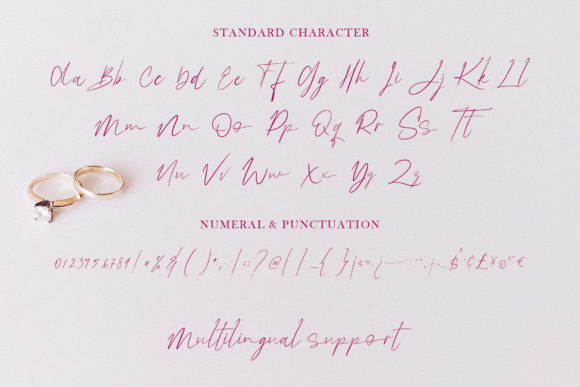 STANDARD CHARACTER
Aa Bb Cc Dd Ee Ff Gg Hh Ii Jj Kk Ll
Mm Nn Oo Pp Qq Rr Ss Tt
Uu Vv Ww Xx Yy Zz
NUMERAL & PUNCTUATION
0123456789! # % & ( ) * ? @ [ ] _ { } $ ¢ £ ¥ €
Multilingual support